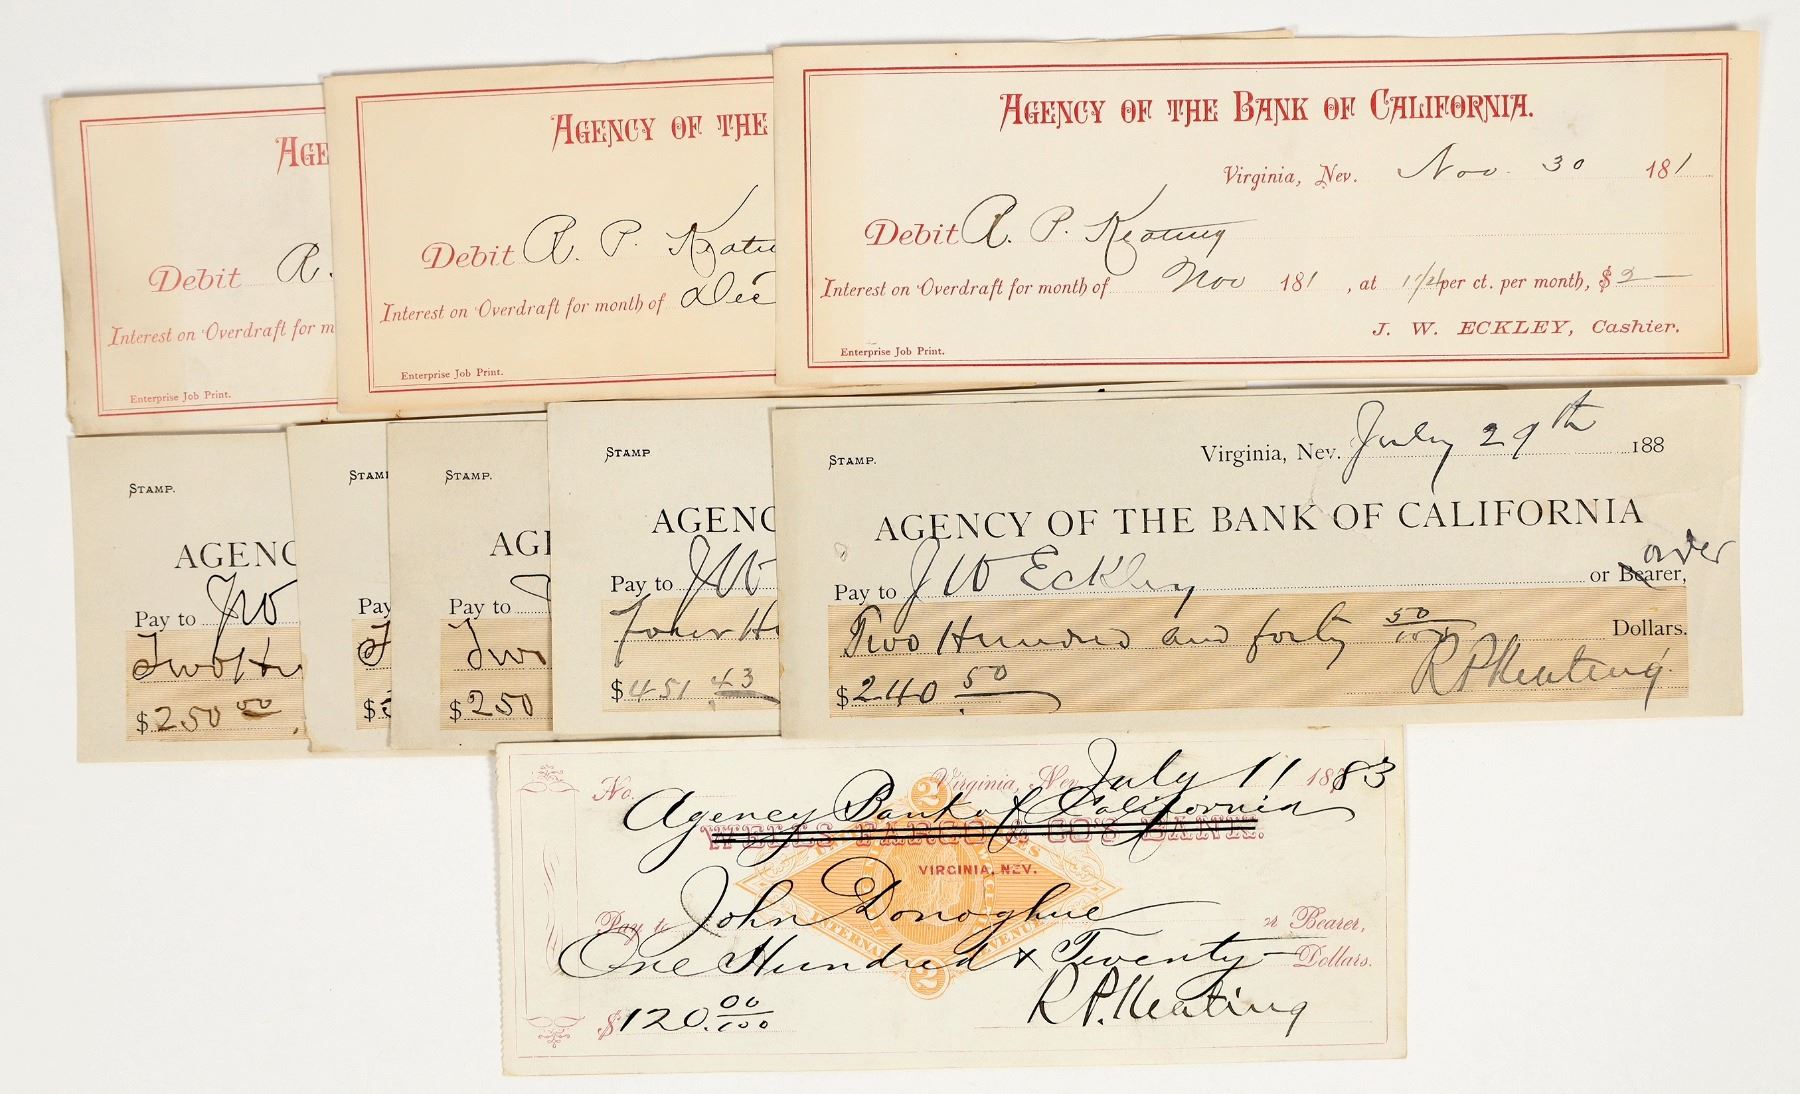 AGE
Debit R.
Interest on Overdraft for m
Enterprise Job Print.
AGENCY OF THE
Debit R. P. Keatin
Interest on Overdraft for month of Dec
Enterprise Job Print.
AGENCY OF THE BANK OF CALIFORNIA.
Virginia, Nev. Nov. 30 181
Debit R. P. Keating
Interest on Overdraft for month of Nov 181, at 1 1/4 per ct. per month, $2 —
J. W. ECKLEY, Cashier.
Enterprise Job Print.
STAMP.
AGENC
Pay to JW
Two Hu
$250 00
STAM
Pay
$
STAMP.
AGE
Pay to J
Two
$250
STAMP
AGENC
Pay to JW
Four Hu
$451 43
STAMP.
Virginia, Nev. July 29th 188
AGENCY OF THE BANK OF CALIFORNIA
order
Pay to J W Eckley or Bearer,
Two Hundred and forty 50/100 Dollars.
$240 50 R P Keating
No. Virginia, Nev. July 11 1883
Agency Bank of California
WELLS FARGO & CO'S BANK.
VIRGINIA, NEV.
Pay to John Donoghue or Bearer,
One Hundred & Twenty — Dollars.
$120.00/100 R P. Keating
2
INTERNAL REVENUE
2